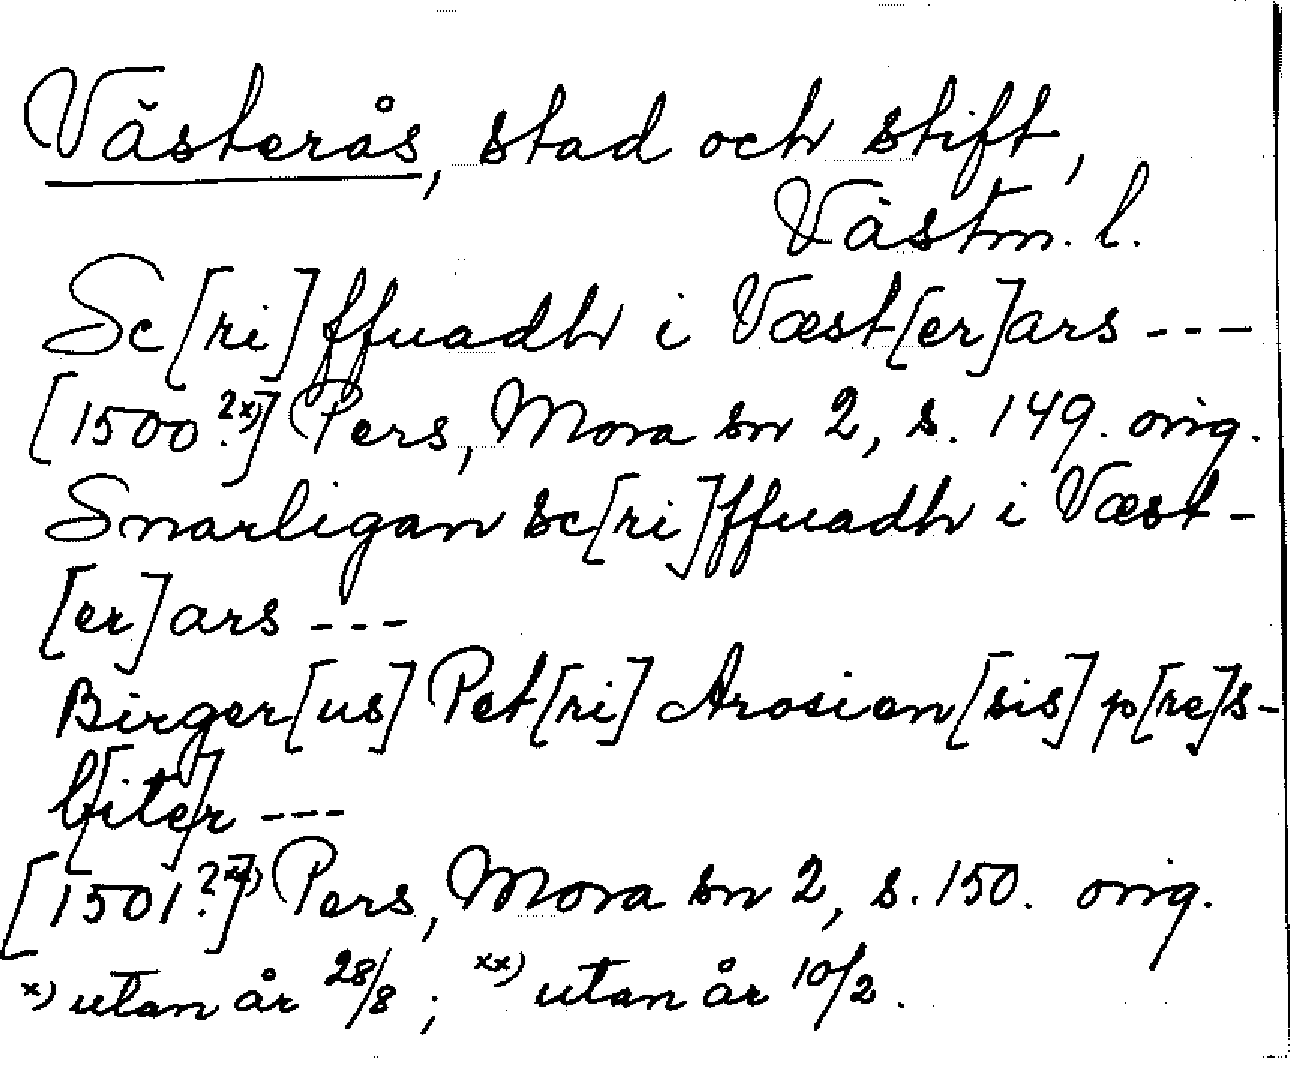 Västerås, stad och stift,
Västm. l.
Sc[ri]ffuadh i Væst[er]ars ---
[1500?x)] Pers, Mora sn 2, s. 149. orig.
Snarligan sc[ri]ffuadh i Væst-
[er]ars ---
Birger[us] Pet[ri] Arosien[sis] p[re]s-
b[ite]r ---
[1501?xx)] Pers, Mora sn 2, s. 150. orig.
x) utan år 28/8 ; xx) utan år 10/2.